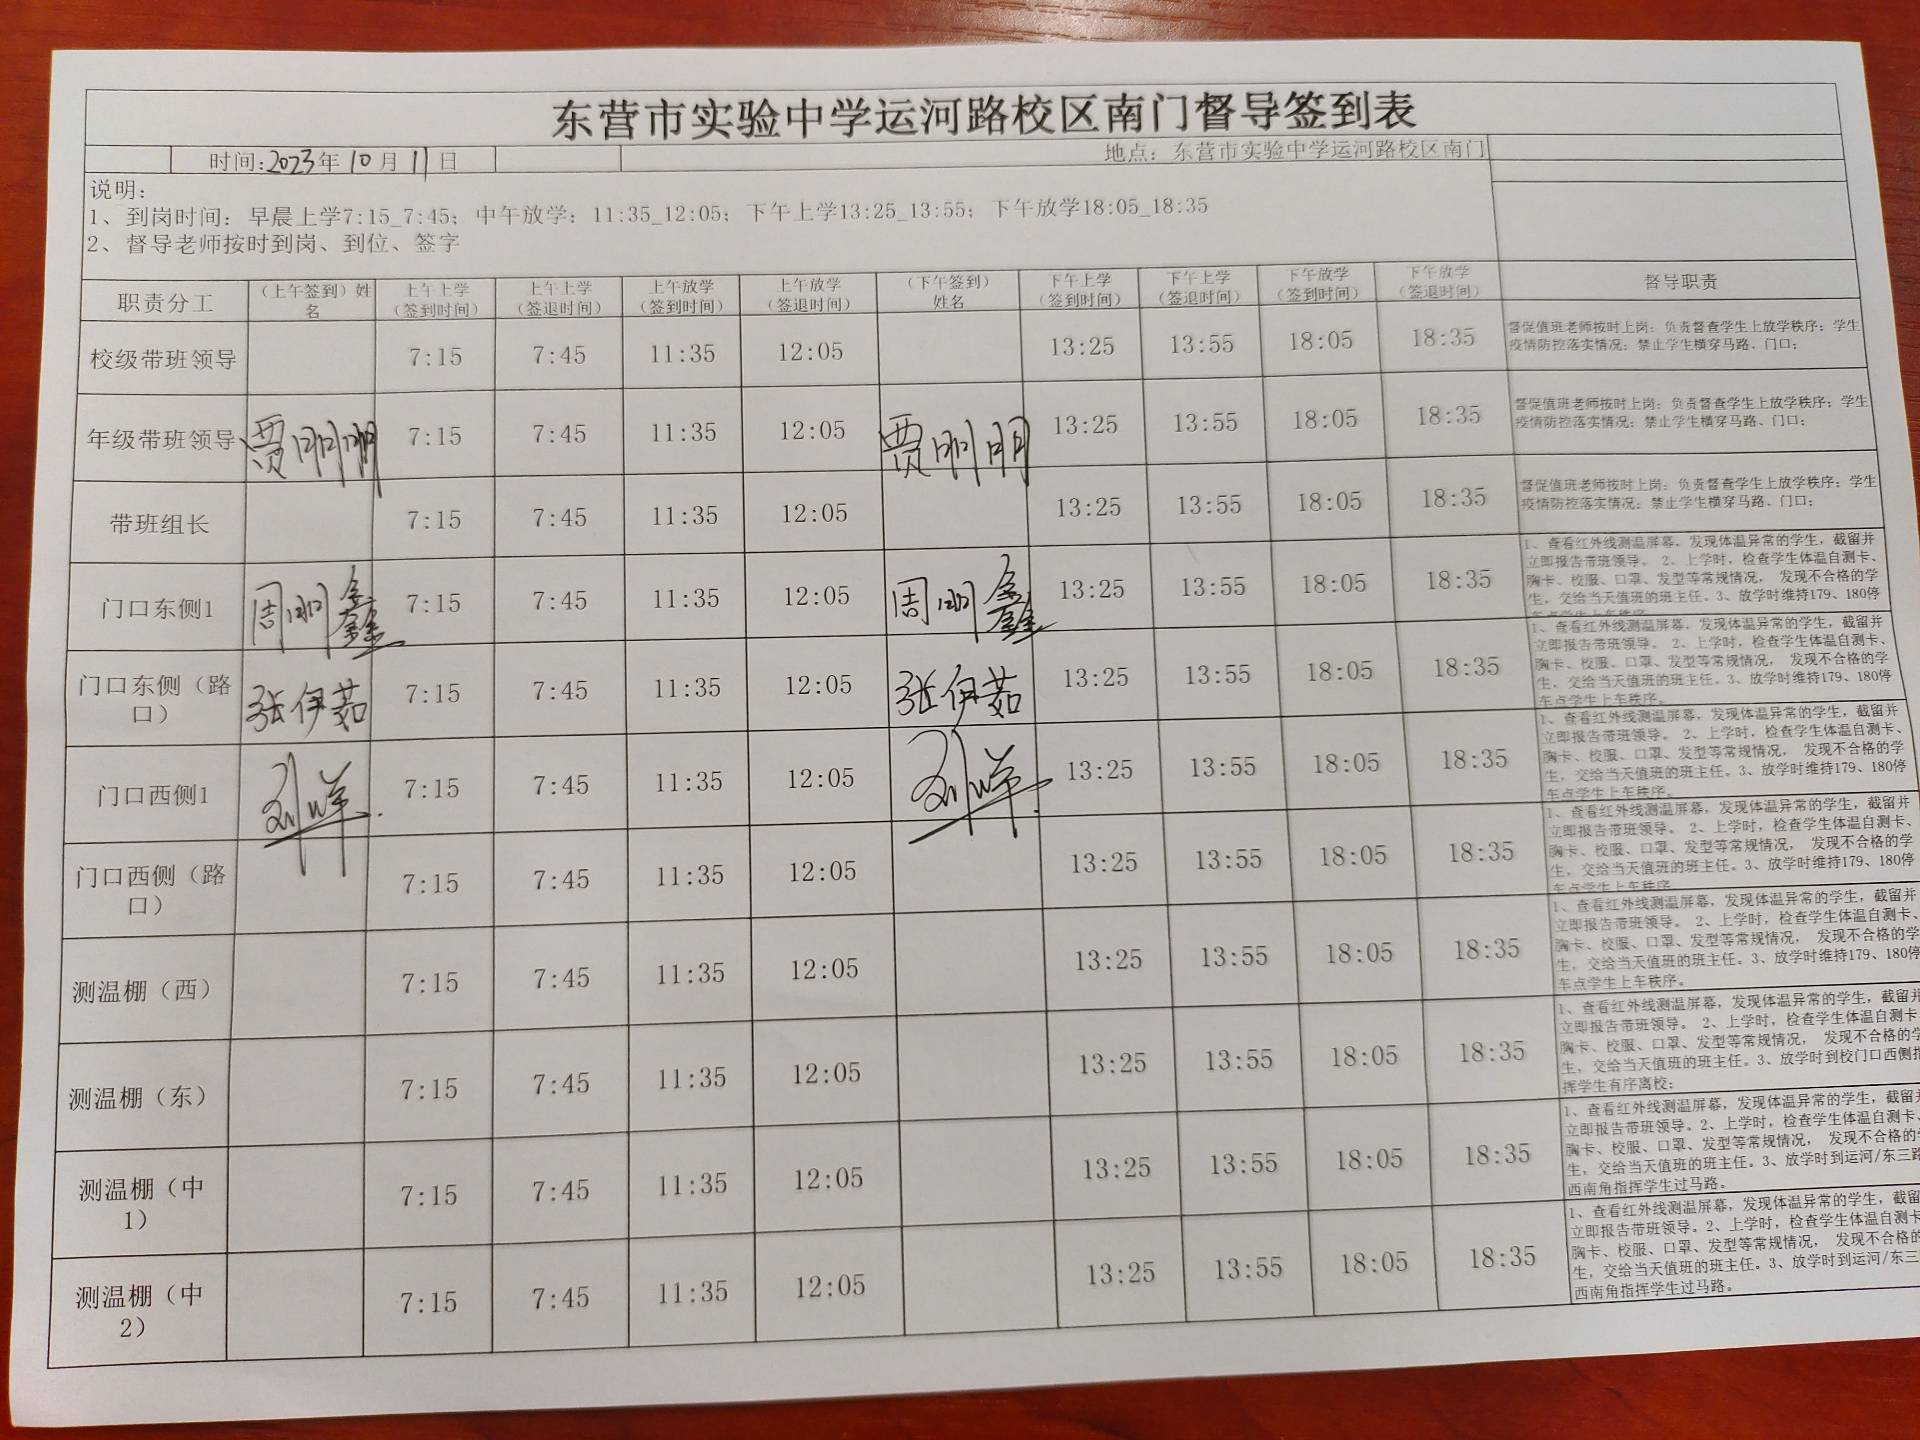 东营市实验中学运河路校区南门督导签到表
时间:2023年10月11日 地点：东营市实验中学运河路校区南门
说明：
1、到岗时间：早晨上学7:15_7:45；中午放学；11:35_12:05；下午上学13:25_13:55；下午放学18:05_18:35
2、督导老师按时到岗、到位、签字
职责分工 （上午签到）姓名 上午上学（签到时间） 上午上学（签退时间） 上午放学（签到时间） 上午放学（签退时间） （下午签到）姓名 下午上学（签到时间） 下午上学（签退时间） 下午放学（签到时间） 下午放学（签退时间） 督导职责
校级带班领导 7:15 7:45 11:35 12:05 13:25 13:55 18:05 18:35 督促值班老师按时上岗；负责督查学生上放学秩序；学生
疫情防控落实情况；禁止学生横穿马路、门口；
年级带班领导 贾明明 7:15 7:45 11:35 12:05 贾明明 13:25 13:55 18:05 18:35 督促值班老师按时上岗；负责督查学生上放学秩序；学生
疫情防控落实情况；禁止学生横穿马路、门口；
带班组长 7:15 7:45 11:35 12:05 13:25 13:55 18:05 18:35 督促值班老师按时上岗；负责督查学生上放学秩序；学生
疫情防控落实情况；禁止学生横穿马路、门口；
门口东侧1 周明鑫 7:15 7:45 11:35 12:05 周明鑫 13:25 13:55 18:05 18:35 1、查看红外线测温屏幕，发现体温异常的学生，截留并
立即报告带班领导。 2、上学时，检查学生体温自测卡、
胸卡、校服、口罩、发型等常规情况， 发现不合格的学
生，交给当天值班的班主任。3、放学时维持179、180停
门口东侧（路口） 张伊茹 7:15 7:45 11:35 12:05 张伊茹 13:25 13:55 18:05 18:35 1、查看红外线测温屏幕，发现体温异常的学生，截留并
立即报告带班领导。 2、上学时，检查学生体温自测卡、
胸卡、校服、口罩、发型等常规情况， 发现不合格的学
生，交给当天值班的班主任。3、放学时维持179、180停
车点学生上车秩序。
门口西侧1 刘洋 7:15 7:45 11:35 12:05 刘洋 13:25 13:55 18:05 18:35 1、查看红外线测温屏幕，发现体温异常的学生，截留并
立即报告带班领导。 2、上学时，检查学生体温自测卡、
胸卡、校服、口罩、发型等常规情况， 发现不合格的学
生，交给当天值班的班主任。3、放学时维持179、180停
车点学生上车秩序。
门口西侧（路口） 7:15 7:45 11:35 12:05 13:25 13:55 18:05 18:35 1、查看红外线测温屏幕，发现体温异常的学生，截留并
立即报告带班领导。 2、上学时，检查学生体温自测卡、
胸卡、校服、口罩、发型等常规情况， 发现不合格的学
生，交给当天值班的班主任。3、放学时维持179、180停
车点学生上车秩序
测温棚（西） 7:15 7:45 11:35 12:05 13:25 13:55 18:05 18:35 1、查看红外线测温屏幕，发现体温异常的学生，截留并
立即报告带班领导。 2、上学时，检查学生体温自测卡、
胸卡、校服、口罩、发型等常规情况， 发现不合格的学
生，交给当天值班的班主任。3、放学时维持179、180停
车点学生上车秩序。
测温棚（东） 7:15 7:45 11:35 12:05 13:25 13:55 18:05 18:35 1、查看红外线测温屏幕，发现体温异常的学生，截留并
立即报告带班领导。 2、上学时，检查学生体温自测卡
胸卡、校服、口罩、发型等常规情况， 发现不合格的学
生，交给当天值班的班主任。3、放学时到校门口西侧指
挥学生有序离校；
测温棚（中1） 7:15 7:45 11:35 12:05 13:25 13:55 18:05 18:35 1、查看红外线测温屏幕，发现体温异常的学生，截留并
立即报告带班领导。2、上学时，检查学生体温自测卡、
胸卡、校服、口罩、发型等常规情况， 发现不合格的
生，交给当天值班的班主任。3、放学时到运河/东三路
西南角指挥学生过马路。
测温棚（中2） 7:15 7:45 11:35 12:05 13:25 13:55 18:05 18:35 1、查看红外线测温屏幕，发现体温异常的学生，截留
立即报告带班领导。2、上学时，检查学生体温自测卡
胸卡、校服、口罩、发型等常规情况， 发现不合格的
生，交给当天值班的班主任。3、放学时到运河/东三
西南角指挥学生过马路。